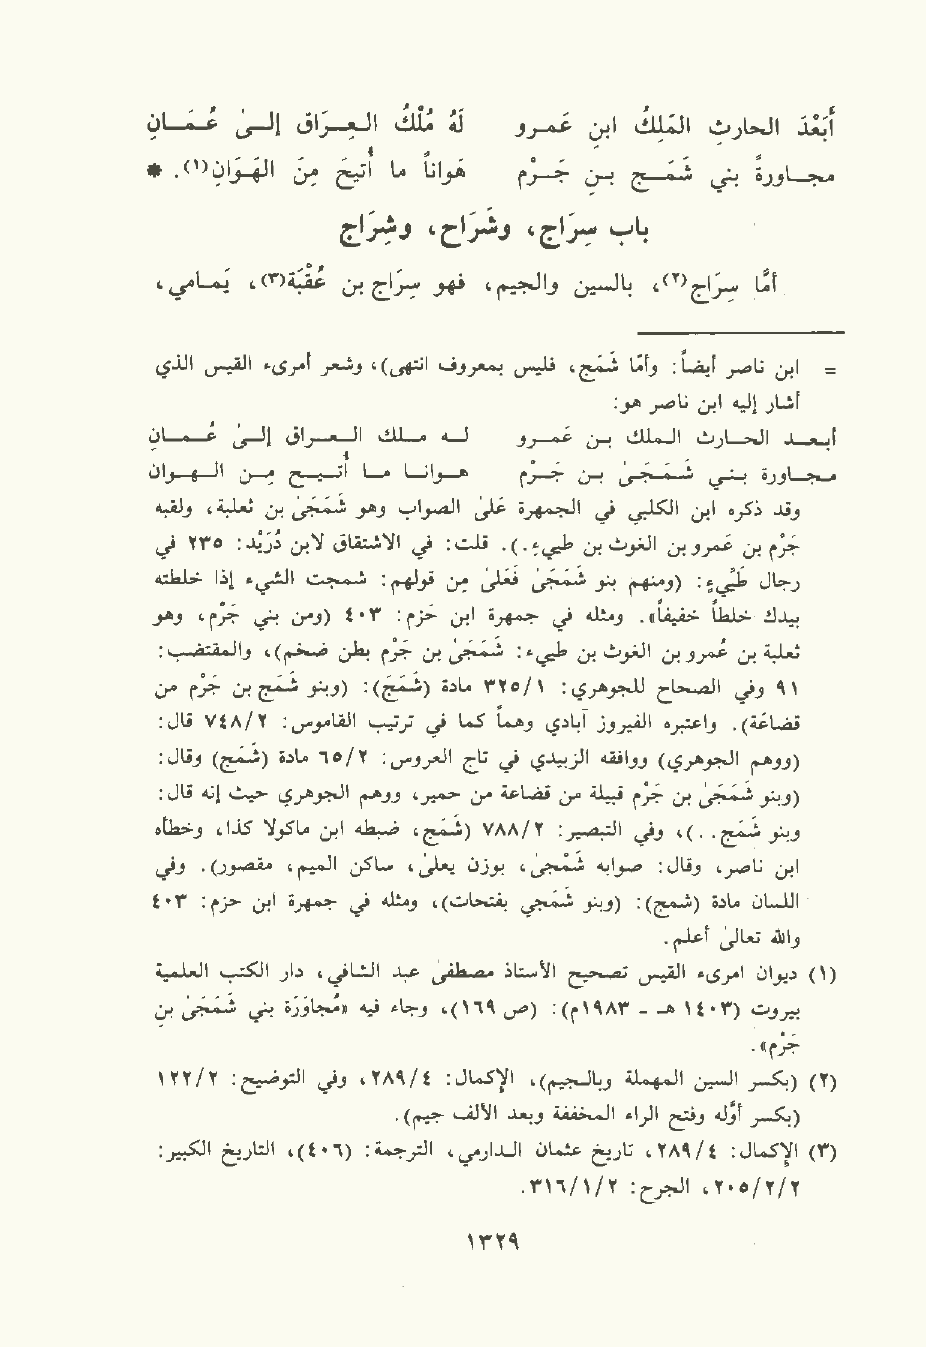 أَبَعْدَ الحارثِ المَلِكُ ابنِ عَمرو لَهُ مُلْكُ العِراقِ إلىٰ عُمَانِ
مجاورةً بني شَمَجَ بنِ جَرْم هَواناً ما أُتيحَ مِنَ الهَوَانِ(١). *
باب سِرَاج، وشَرَاح، وشِرَاج
أمَّا سِرَاج(٢)، بالسين والجيم، فهو سِرَاج بن عُقْبَة(٣)، يَمامي،
= ابن ناصر أيضاً: وأمّا شَمَج، فليس بمعروف انتهى)، وشعر أمرىء القيس الذي
أشار إليه ابن ناصر هو:
أبعد الحارث الملك بن عَمرو له ملك العراق إلىٰ عُمان
مجاورة بني شَمَجىٰ بن جَرْم هواناً ما أُتيح من الهوان
وقد ذكره ابن الكلبي في الجمهرة علىٰ الصواب وهو شَمَجىٰ بن ثعلبة، ولقبه
جَرْم بن عَمرو بن الغوث بن طيء.). قلت: في الاشتقاق لابن دُرَيْد: ٢٣٥ في
رجال طَيِّء: (ومنهم بنو شَمَجىٰ فَعَلىٰ من قولهم: شمجت الشيء إذا خلطته
بيدك خلطاً خفيفاً». ومثله في جمهرة ابن حزم: ٤٠٣ (ومن بني جَرْم، وهو
ثعلبة بن عَمرو بن الغوث بن طيء: شَمَجىٰ بن جَرْم بطن ضخم)، والمقتضب:
٩١ وفي الصحاح للجوهري: ٣٢٥/١ مادة (شَمَج): (وبنو شَمَج بن جَرْم من
قضاعة). واعتبره الفيروز آبادي وهماً كما في ترتيب القاموس: ٧٤٨/٢ قال:
(ووهم الجوهري) ووافقه الزبيدي في تاج العروس: ٦٥/٢ مادة (شَمَج) وقال:
(وبنو شَمَجىٰ بن جَرْم قبيلة من قضاعة من حمير، ووهم الجوهري حيث إنه قال:
وبنو شَمَج. .)، وفي التبصير: ٧٨٨/٢ (شمج، ضبطه ابن ماكولا كذا، وخطأه
ابن ناصر، وقال: صوابه شَمْجىٰ، بوزن يعلىٰ، ساكن الميم، مقصور). وفي
اللسان مادة (شمج): (وبنو شَمَجي بفتحات)، ومثله في جمهرة ابن حزم: ٤٠٣
والله تعالىٰ أعلم.
(١) ديوان امرىء القيس تصحيح الأستاذ مصطفىٰ عبد الشافي، دار الكتب العلمية
بيروت (١٤٠٣ هـ - ١٩٨٣م): (ص ١٦٩)، وجاء فيه «مُجاوَرَة بني شَمَجىٰ بنِ
جَرْم».
(٢) (بكسر السين المهملة وبالجيم)، الإكمال: ٢٨٩/٤، وفي التوضيح: ١٢٢/٢
(بكسر أوَّله وفتح الراء المخففة وبعد الألف جيم).
(٣) الإكمال: ٢٨٩/٤، تاريخ عثمان الدارمي، الترجمة: (٤٠٦)، التاريخ الكبير:
٢٠٥/٢/٢، الجرح: ٣١٦/١/٢.
١٣٢٩